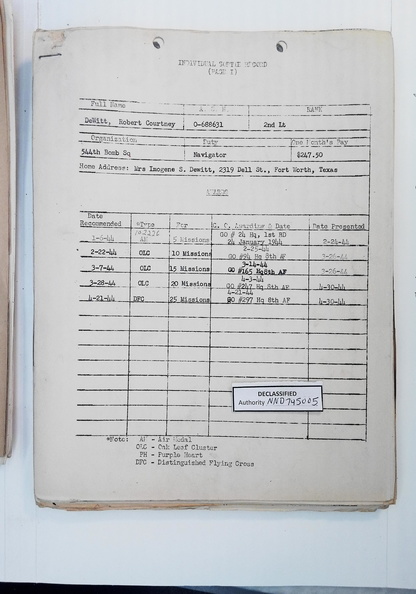 INDIVIDUAL SORTIE RECORD
(PAGE I)
Full Name A. S. N. RANK
DeWitt, Robert Courtney O-688631 2nd Lt
Organization Duty One Month's Pay
544th Bomb Sq Navigator $247.50
Home Address: Mrs Imogene S. Dewitt, 2319 Dell St., Fort Worth, Texas
AWARDS
Date Recommended *Type For G. O. Awarding & Date Date Presented
1-6-44 AM 5 Missions GO # 24 Hq, 1st BD 24 January 1944 2-24-44
2-22-44 OLC 10 Missions GO #94 Hq 8th AF
3-7-44 OLC 15 Missions 3-14-44 GO #165 Hq 8th AF 3-26-44
3-28-44 OLC 20 Missions 4-3-44 GO #247 Hq 8th AF 4-30-44
4-21-44 DFC 25 Missions 4-21-44 GO #297 Hq 8th AF 4-30-44
DECLASSIFIED
Authority NND745005
*Note: AM - Air Medal
OLC - Oak Leaf Cluster
PH - Purple Heart
DFC - Distinguished Flying Cross